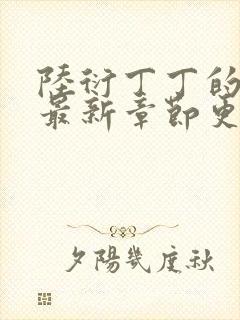 陸衍丁丁的
最新章節更
夕陽幾度秋